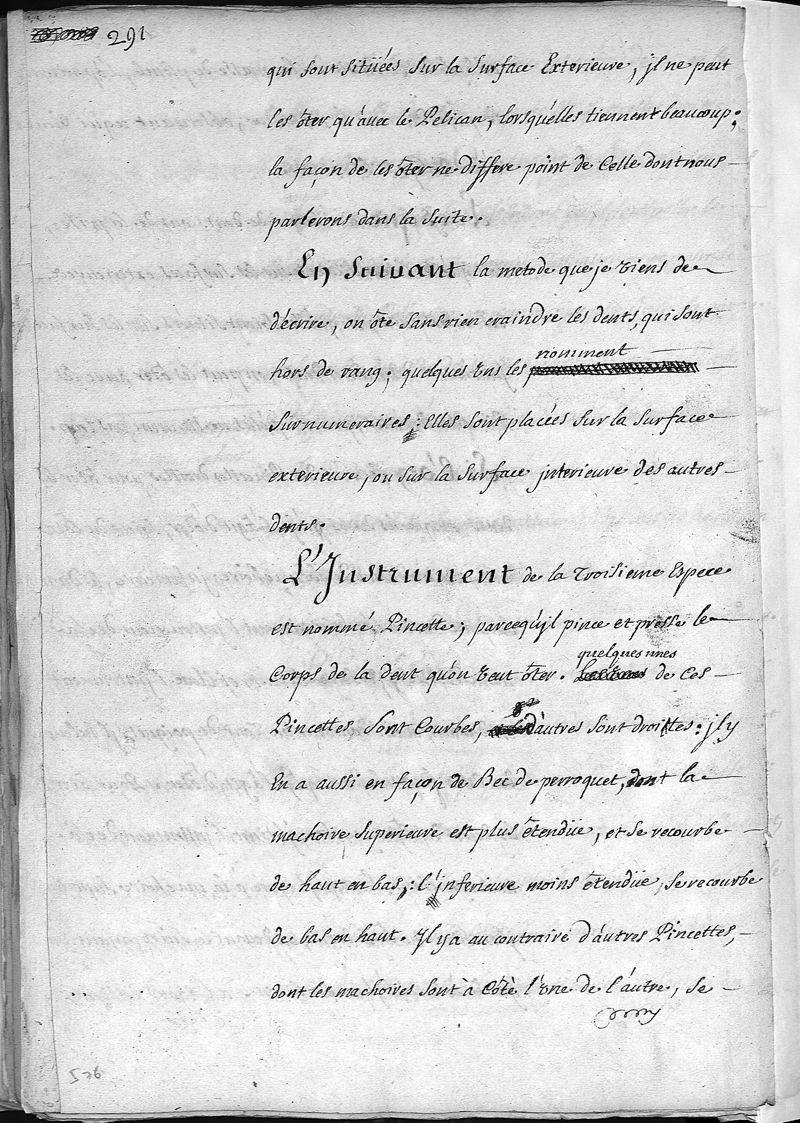 291
qui sont sitüées sur la surface Exterieure, jl ne peut
les ôter qu'avec le Pelican, lorsqu'elles tiennent beaucoup;
la façon de les ôter ne differe point de Celle dont nous
parlerons dans la suite.
En suivant la metode que je viens de
d'écrire, on ôte sans rien craindre les dents, qui sont
nomment
hors de rang; quelques uns les
surnumeraires: Elles sont placées sur la surface
exterieure, ou sur la surface jnterieure des autres
dents.
L'Instrument de la troisieme Espece
est nommé Pincette; parcequ'jl pince et presse le
quelques unes
Corps de la dent qu'on veut ôter. de Ces
Pincettes sont Courbes, d'autres sont droittes: jl y
En a aussi en façon de Bec de perroquet, dont la
machoire superieure est plus étendüe, et se recourbe
de haut en bas; l'jnferieure moins étendüe, se recourbe
de bas en haut. Jl y a au contraire d'autres Pincettes,
dont les machoires sont à Côté l'une de l'autre, se
576